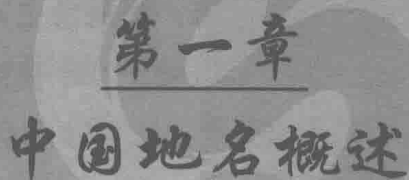 第一章
中国地名概述